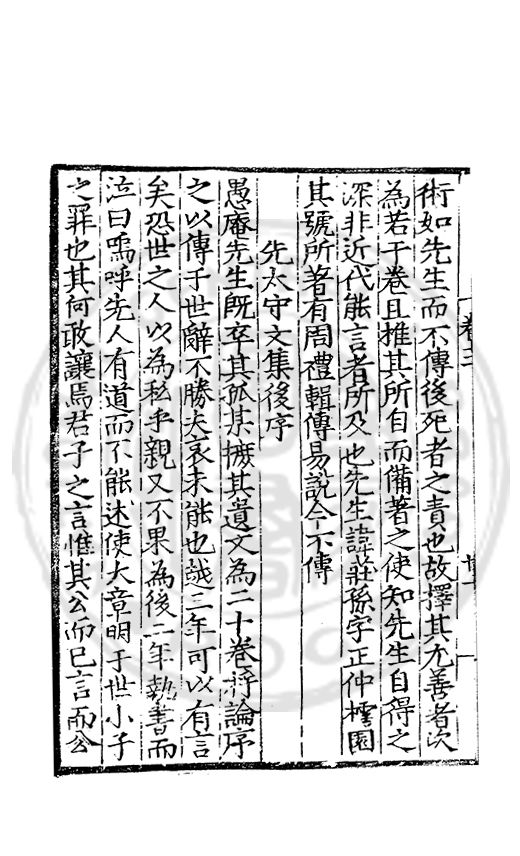 術如先生而不傳後死者之責也故擇其尤善者次
為若干卷且推其所自而備著之使知先生自得之
深非近代能言者所及也先生諱莊孫字正仲樗園
其號所著有周禮輯傳易說今不傳
先太守文集後序
愚庵先生既卒其孤某摭其遺文為二十卷將論序
之以傳于世辭不勝夫哀未能也越三年可以有言
矣恐世之人以為私乎親又不果為後二年執書而
泣曰嗚呼先人有道而不能述使大章明于世小子
之罪也其何敢讓焉君子之言惟其公而已言而公
卷三